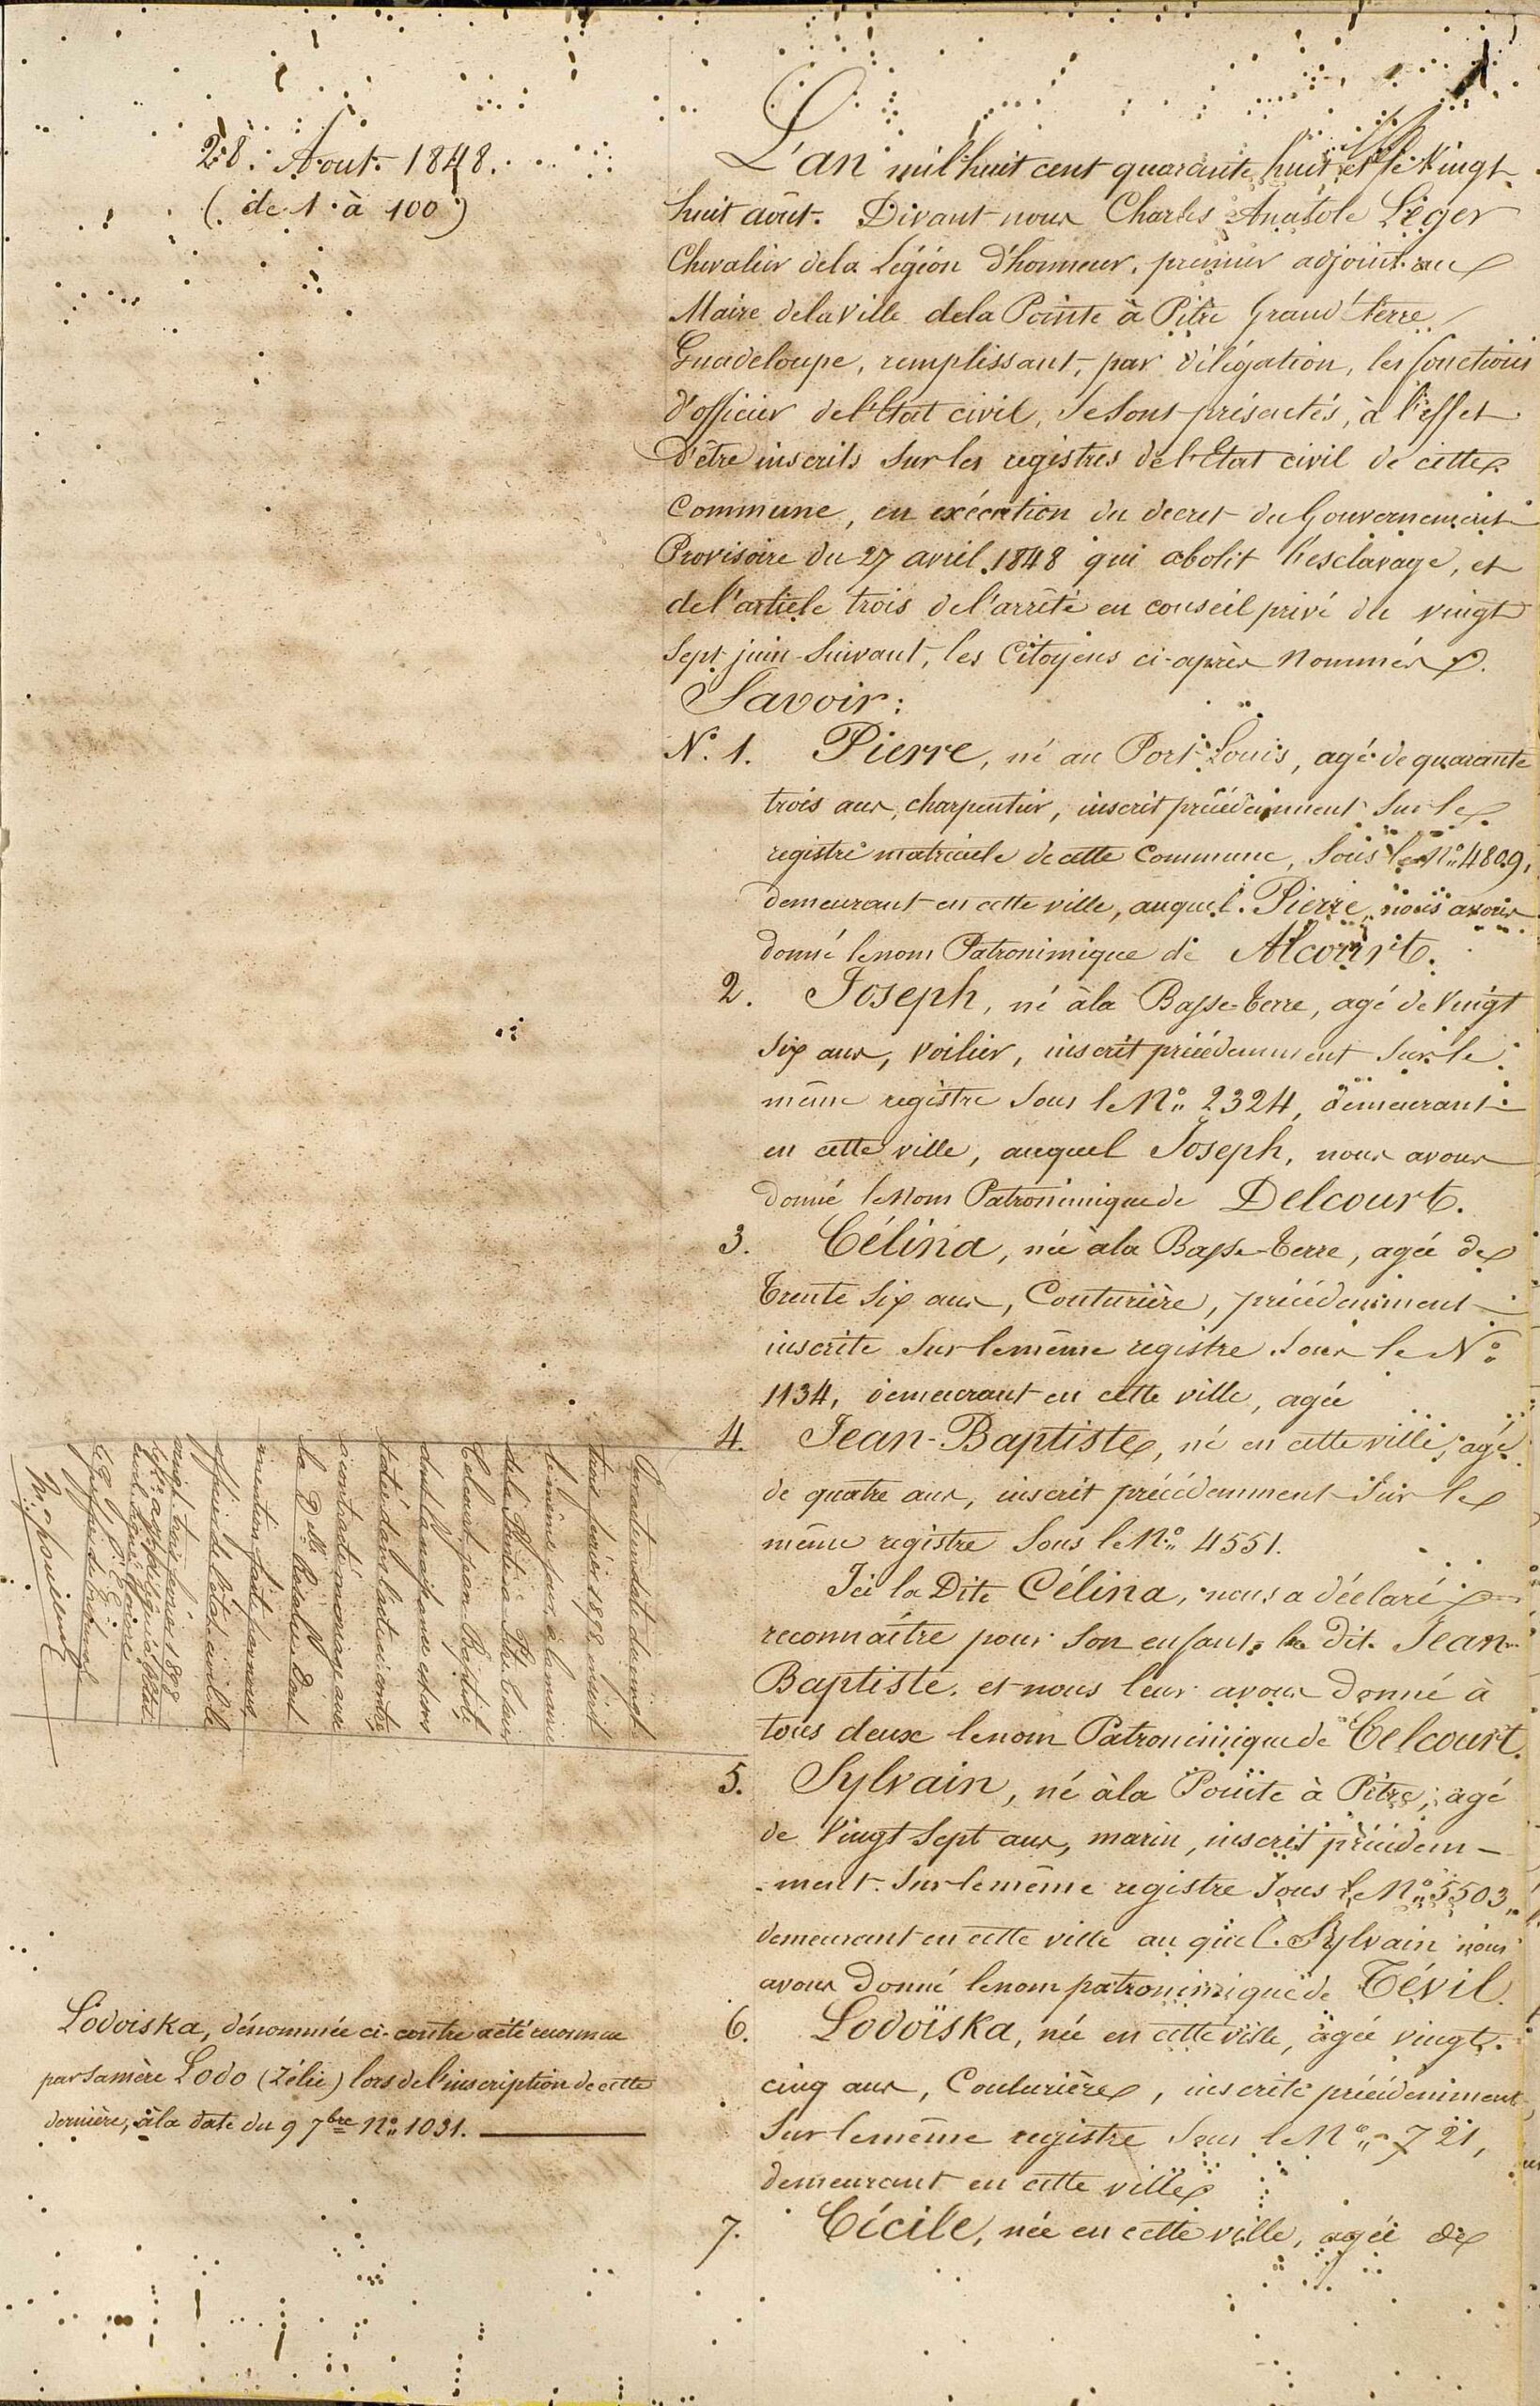 1
28. Aout. 1848.
(de 1 à 100)
L'an mil huit cent quarante huit et le Vingt
huit août. Devant nous Charles Anatole Léger
Chevalier dela Légion d'honneur, premier adjoint au
Maire dela Ville dela Pointe à Pitre Grand'terre
Guadeloupe, remplissant, par délégation, les fonctions
d'officier de l'Etat civil, Se sont présentés, à l'effet
D'être inscrits Sur les registres de l'Etat civil de cette
Commune, en exécution du decret du Gouvernement
Provisoire du 27 avril 1848 qui abolit l'esclavage, et
del'article trois del'arrêté en conseil privé du vingt
Sept juin Suivant, les Citoyens ci-après Nommés.
Savoir:
N° 1. Pierre, né au Port-Louis, agé de quarante
trois ans, charpentier, inscrit précédemment Sur le
registre matricule de cette Commune, Sous le N° 4809,
demeurant en cette ville, auquel Pierre, nous avons
donné le nom Patronimique de Alcourt.
2. Joseph, né àla Basse-terre, agé de Vingt
Six ans, voilier, inscrit précédemment Sur le
même registre Sous le N° 2324, demeurant
en cette ville, auquel Joseph, nous avons
donné le Nom Patronimique de Delcourt.
3. Célina, née àla Basse-terre, agée de
Trente Six ans, Couturière, précédemment
inscrite Sur le même registre Sous le N°
1134, demeurant en cette ville, agée
4. Jean-Baptiste, né en cette ville, agé
de quatre ans, inscrit précédemment Sur le
même registre Sous le N° 4551.
Ici la Dite Célina, nous a déclaré
reconnaître pour Son enfant le dit Jean-
Baptiste, et nous leur avons donné à
tous deux le nom Patronimique de Celcourt.
5. Sylvain, né àla Pointe à Pitre, agé
de Vingt Sept ans, marin, inscrit précédem-
-ment Sur le même registre Sous le N° 5503,
demeurant en cette ville au quel Sylvain nous
avons Donné le nom patronimique de Tévil.
6. Lodoïska, née en cette ville, agée vingt
cinq ans, Couturière, inscrite précédemment
Sur le même registre Sous le N° 721,
demeurant en cette ville
7. Cécile, née en cette ville, agée de
trois février 1898 
le même jour, à la mairie
dela Pointe à Pitre
Celcourt Jean-Baptiste
dont la naissance est cons
tatée dans l'acte ci-contre,
a contracté mariage avec
la Dlle
mention faite par nous
officier de l'état civil le
vingt trois février 1898
Lodoiska, dénommée ci-contre a été reconnue
par sa mère Lodo (Zélie) lors de l'inscription de cette
dernière, àla date du 9 7bre N° 1031.